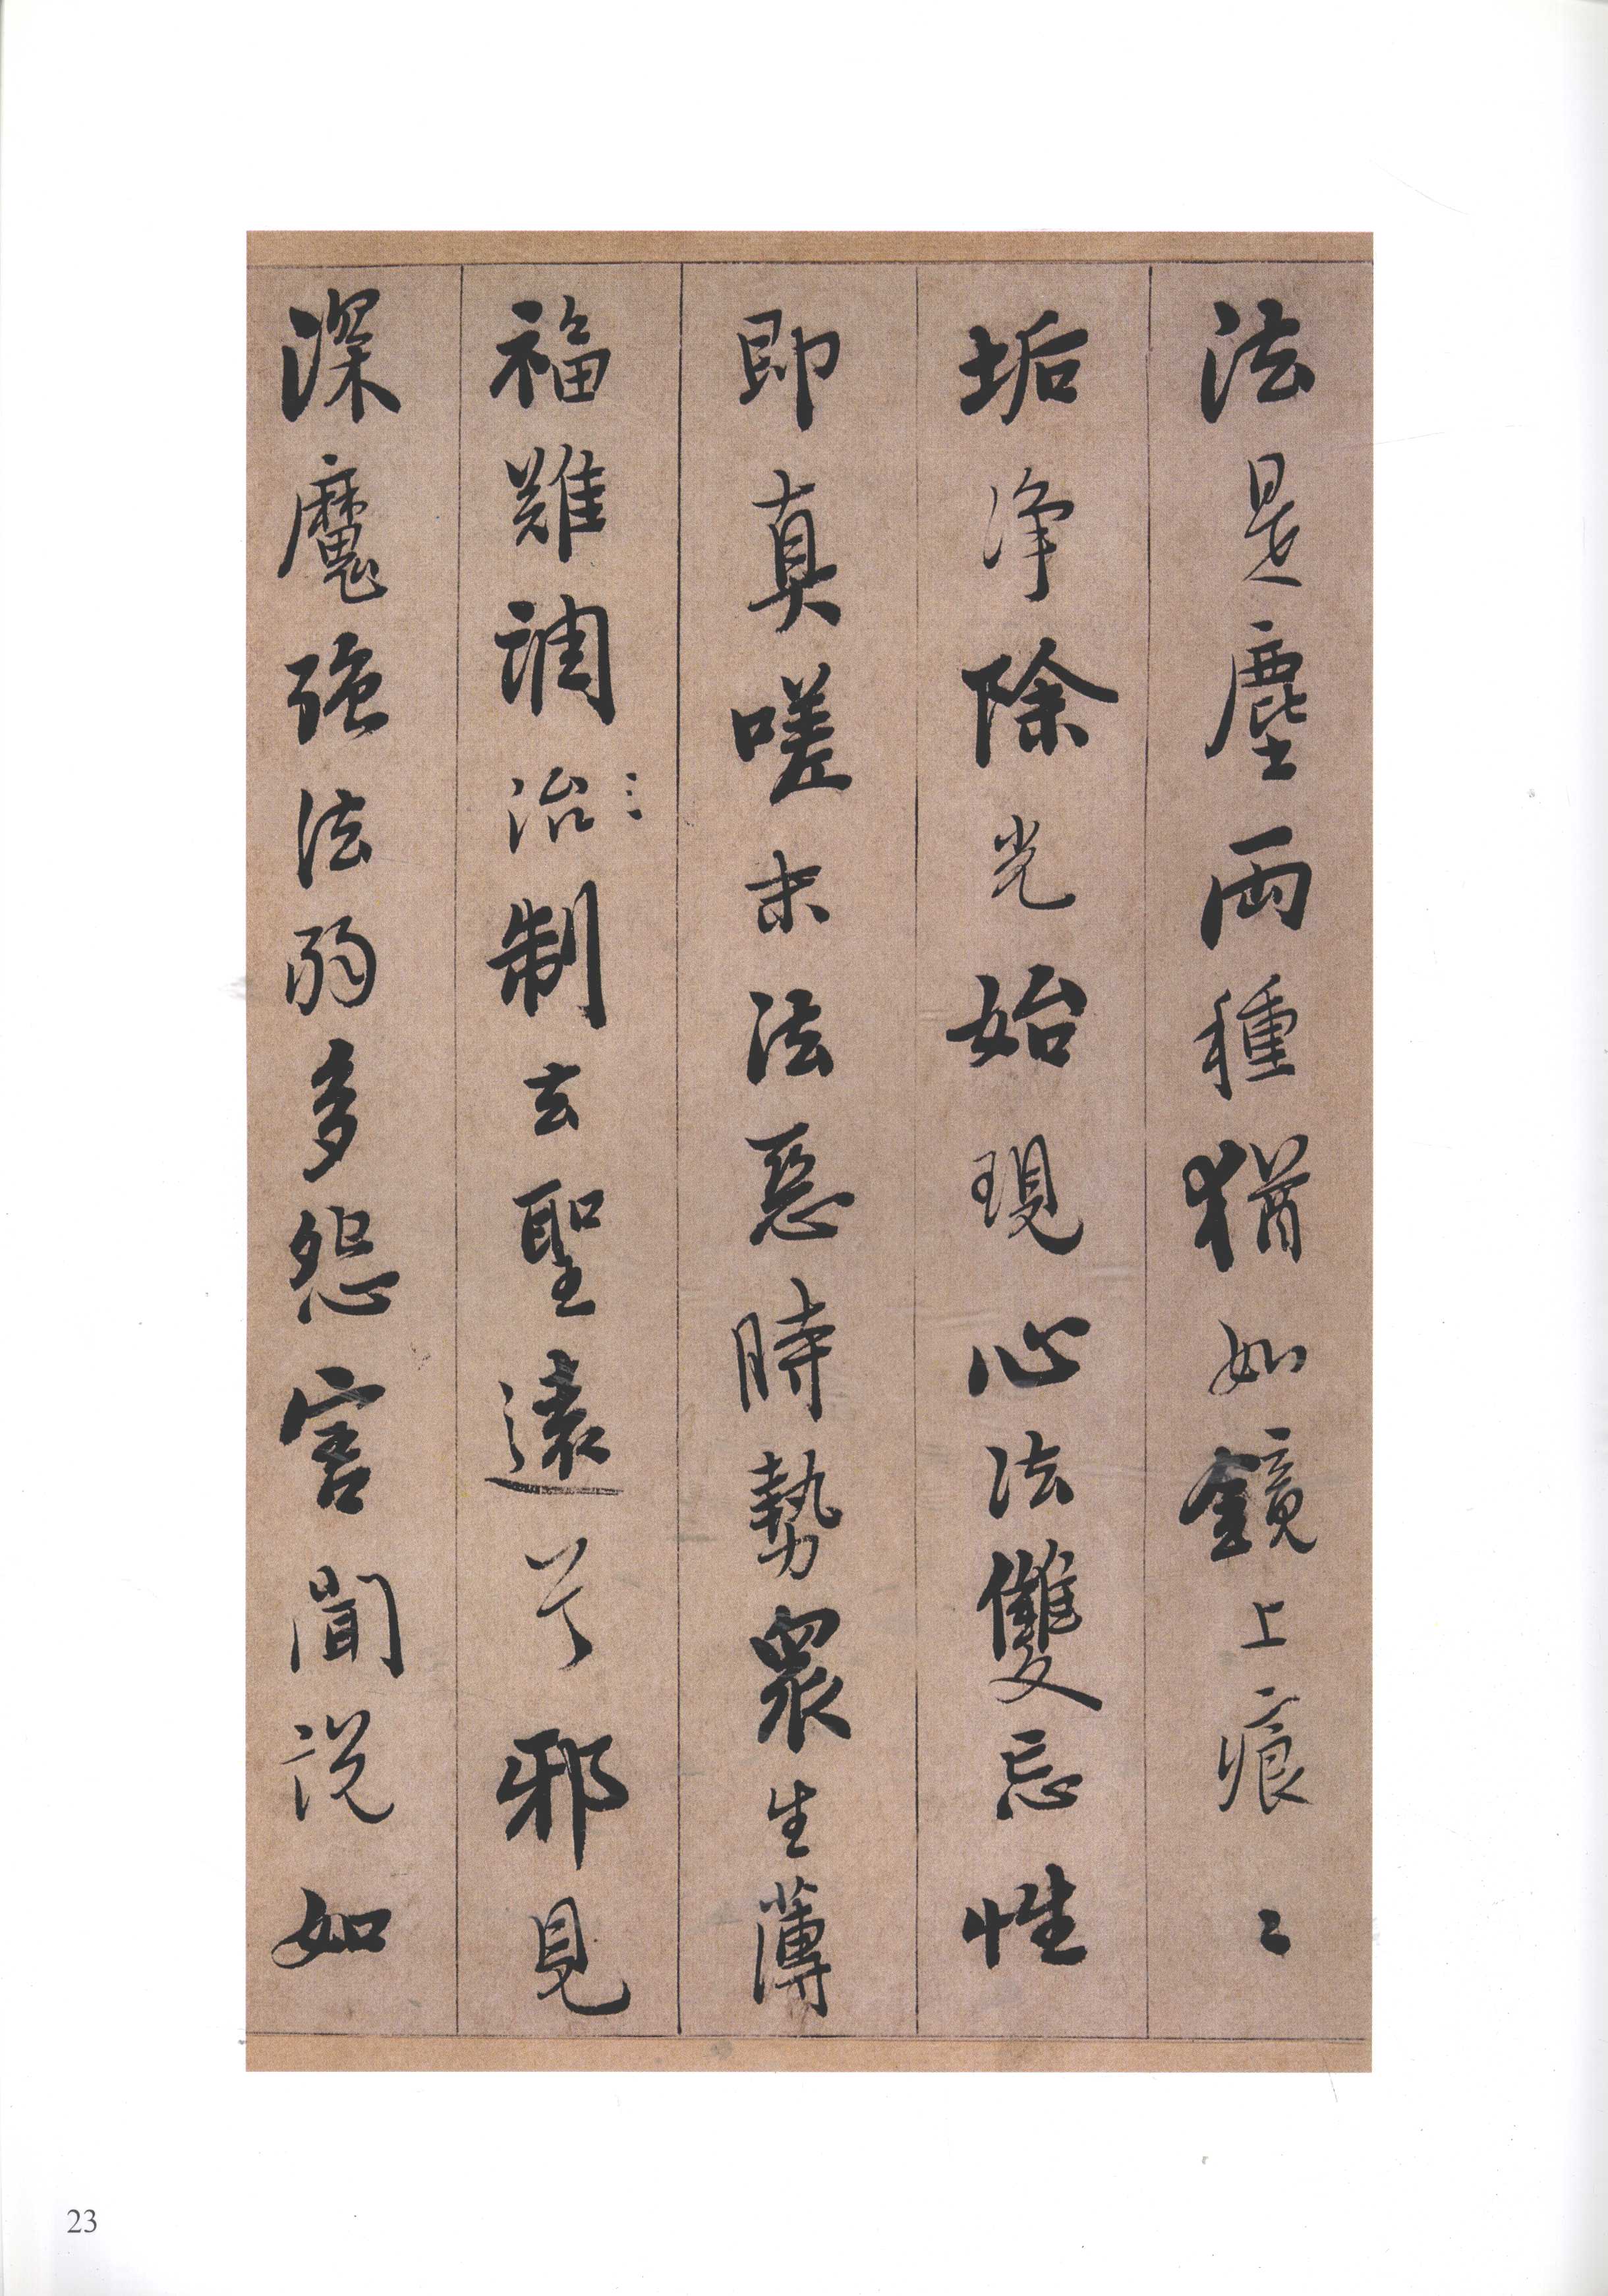 法是塵兩種猶如鏡上痕〻
垢淨除光始現心法雙忘性
即真嗟末法惡時勢眾生薄
福難調治制去聖遠兮邪見
深魔強法弱多怨害聞說如
23